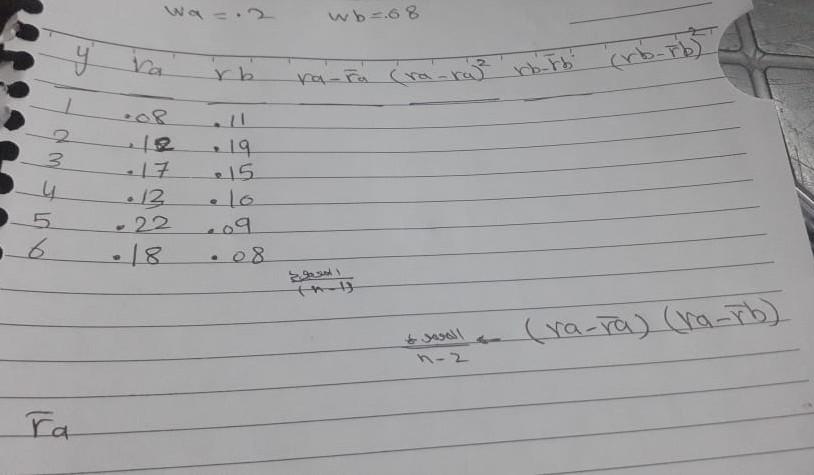 wa = .2 wb = .68
y ra rb ra - r̄a (ra - ra)² rb - r̄b (rb - r̄b)²
1 .08 .11
2 .12 .19
3 .17 .15
4 .13 .10
5 .22 .09
6 .18 .08
(n-1)
(ra - r̄a) (ra - r̄b)
n-2
r̄a